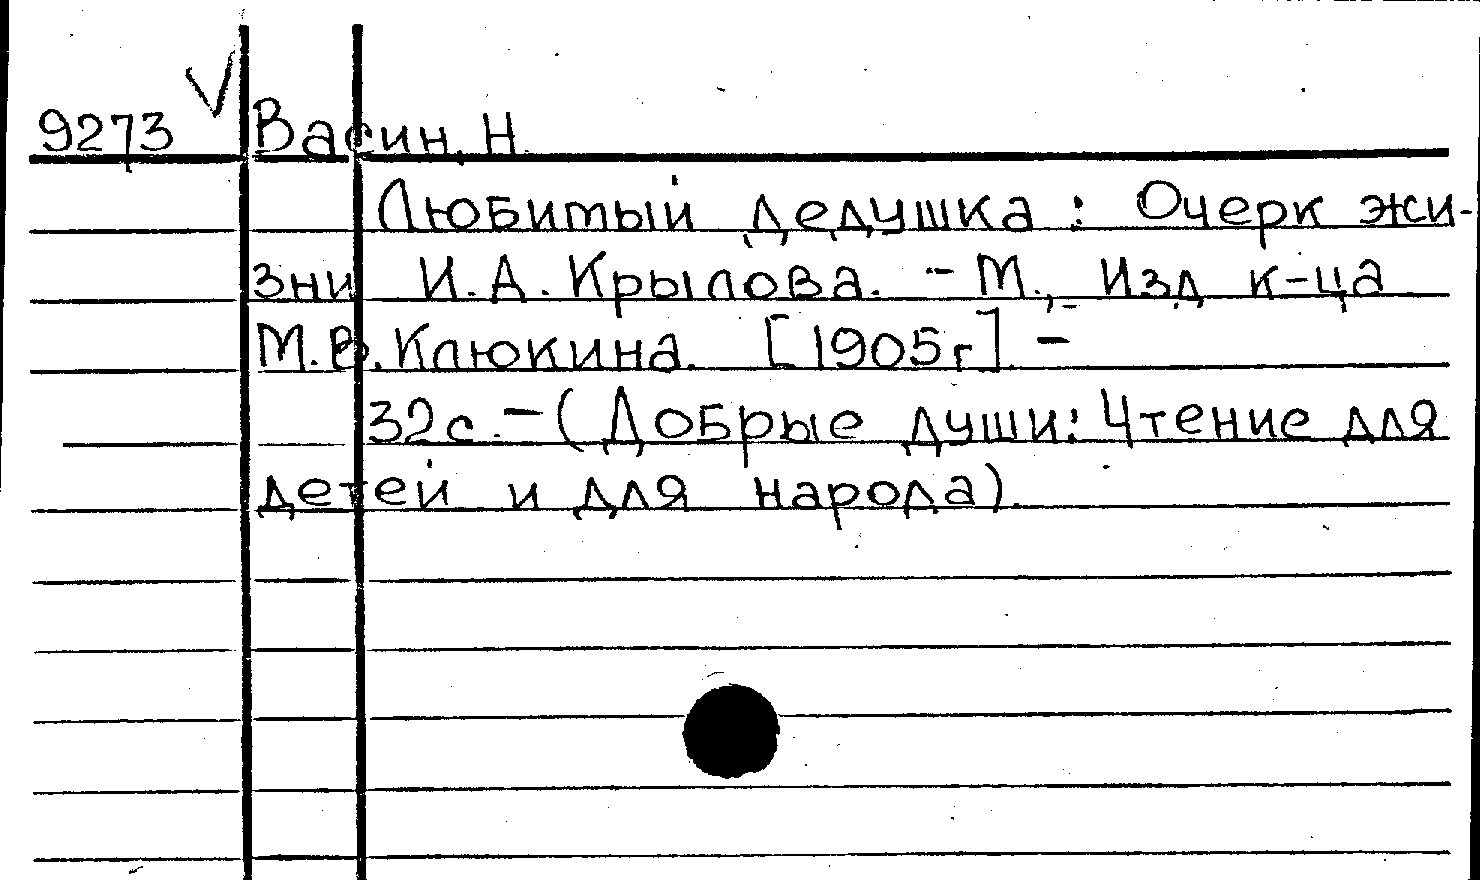 9273 Васин, Н.
Любимый дедушка: Очерк жи-
зни И.А.Крылова. - М., Изд к-ца
М.В.Клюкина. [1905г]. -
32с. - (Добрые души: Чтение для
детей и для народа).